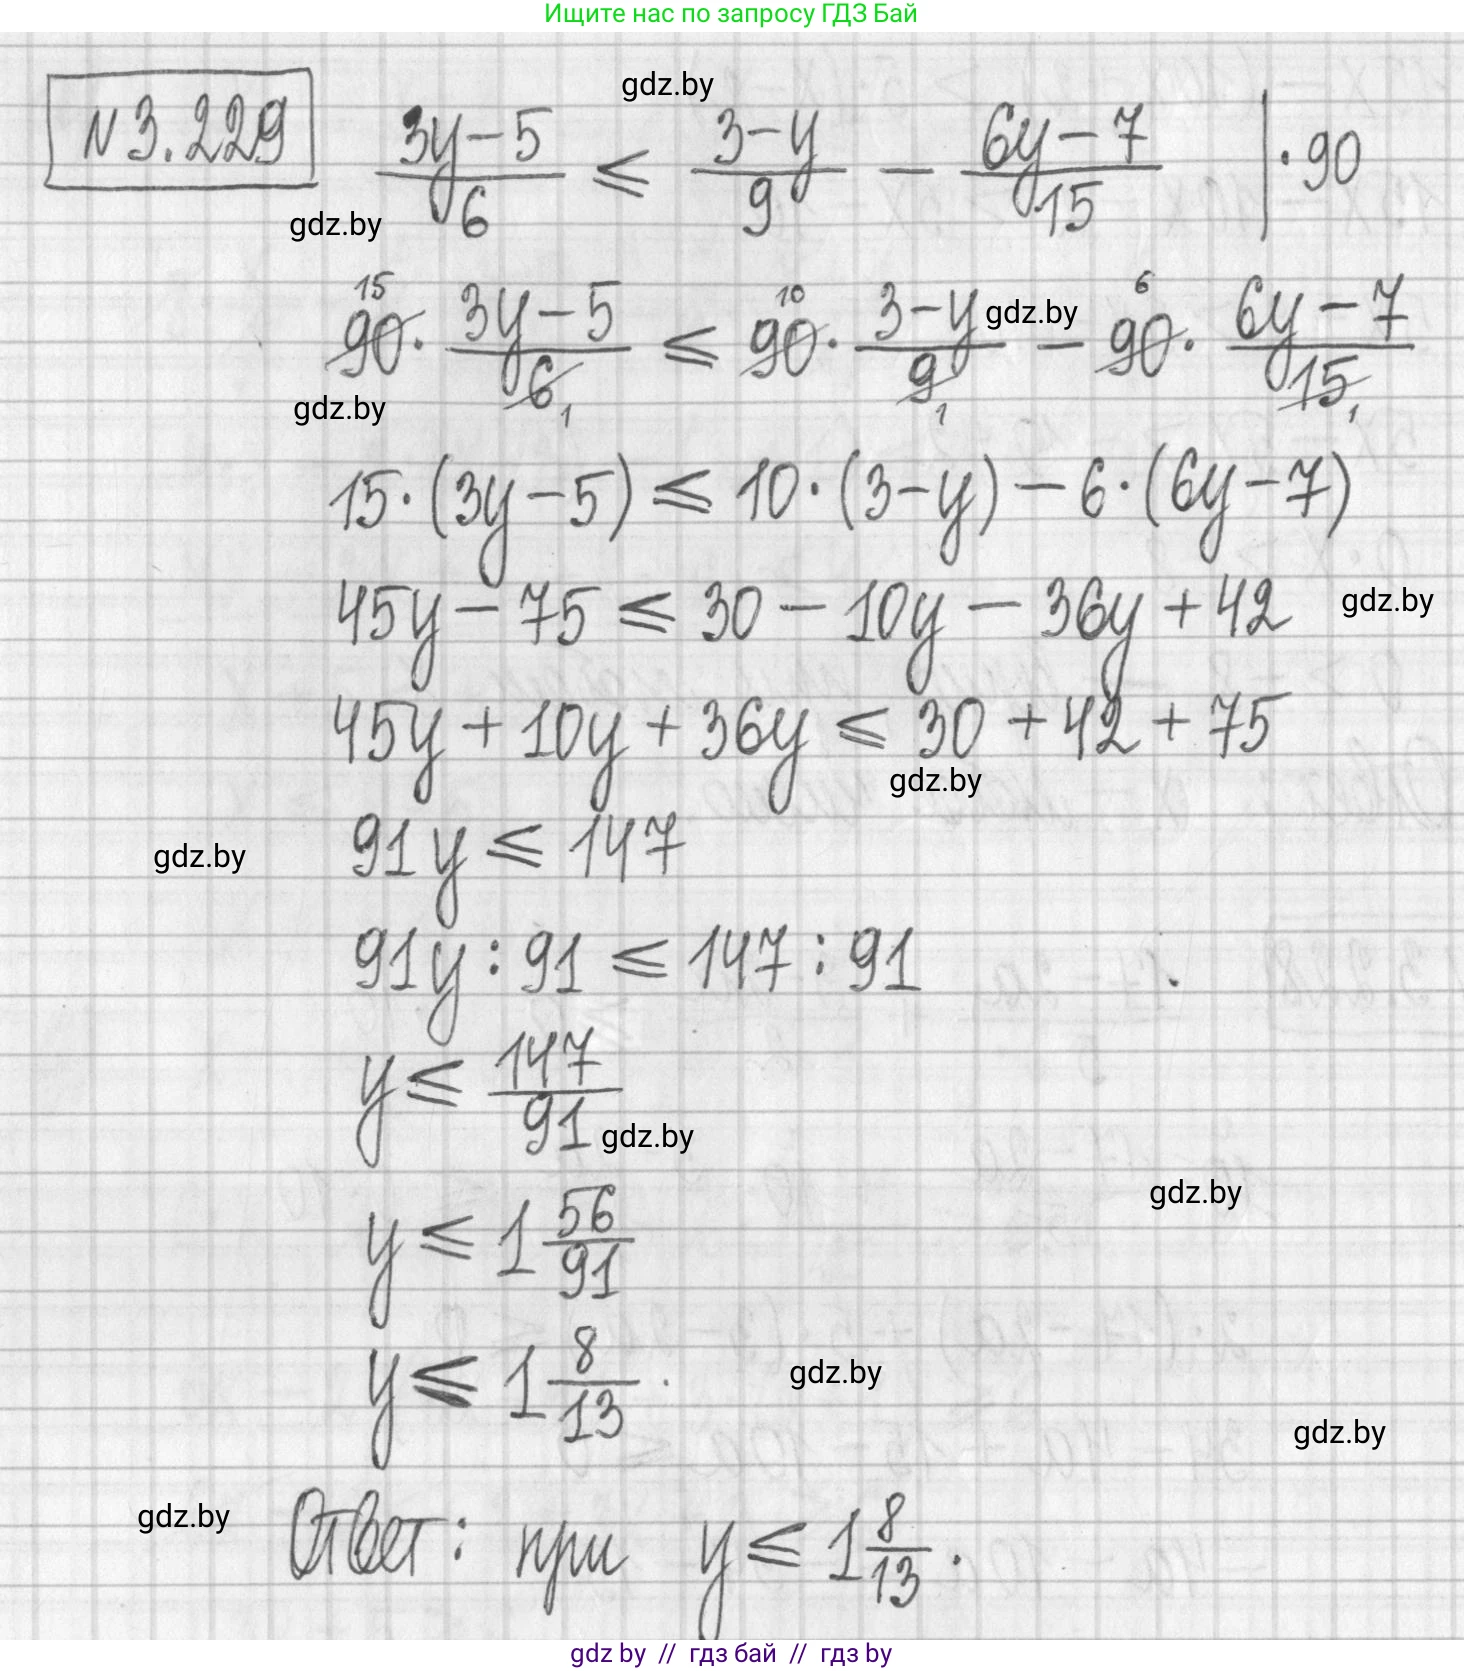 Ищите нас по запросу ГДЗ Бай
gdz.by
N 3.229 (3y-5)/6 ≤ (3-y)/9 - (6y-7)/15 | · 90
gdz.by
15 10 6
90 · (3y-5)/6 ≤ 90 · (3-y)/9 - 90 · (6y-7)/15
gdz.by
1 1 1
gdz.by
15 · (3y-5) ≤ 10 · (3-y) - 6 · (6y-7)
45y - 75 ≤ 30 - 10y - 36y + 42
gdz.by
45y + 10y + 36y ≤ 30 + 42 + 75
gdz.by
91y ≤ 147
gdz.by
91y : 91 ≤ 147 : 91
y ≤ 147/91
gdz.by
gdz.by
y ≤ 1 56/91
y ≤ 1 8/13.
gdz.by
gdz.by
gdz.by
Ответ: при y ≤ 1 8/13.
gdz by // гдз бай // gdz by